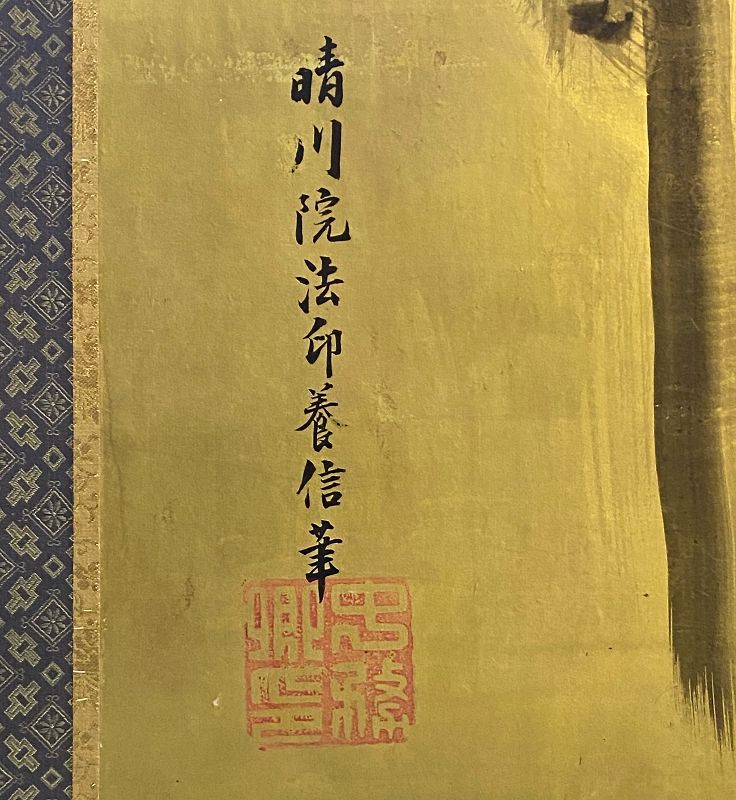 晴川院法印養信筆